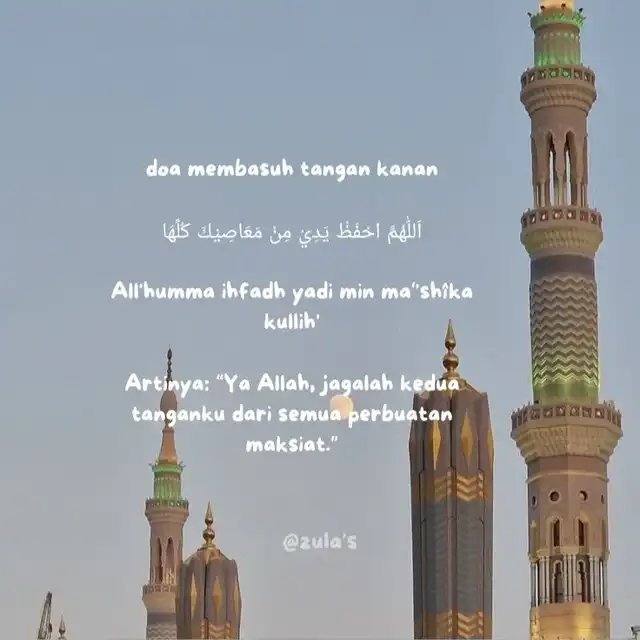 doa membasuh tangan kanan
اَللّٰهُمَّ احْفَظْ يَدِيْ مِنْ مَعَاصِيْكَ كُلِّهَا
All'humma ihfadh yadi min ma''shîka
kullih'
Artinya: "Ya Allah, jagalah kedua
tanganku dari semua perbuatan
maksiat."
@zula's